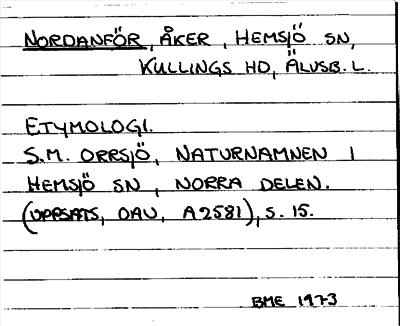 NORDANFÖR, ÅKER, HEMSJÖ SN,
KULLINGS HD, ÄLVSB. L.
ETYMOLOGI.
S.M. ORRSJÖ, NATURNAMNEN I
HEMSJÖ SN, NORRA DELEN.
(UPPSATS, OAU, A2581), S. 15.
BME 1973